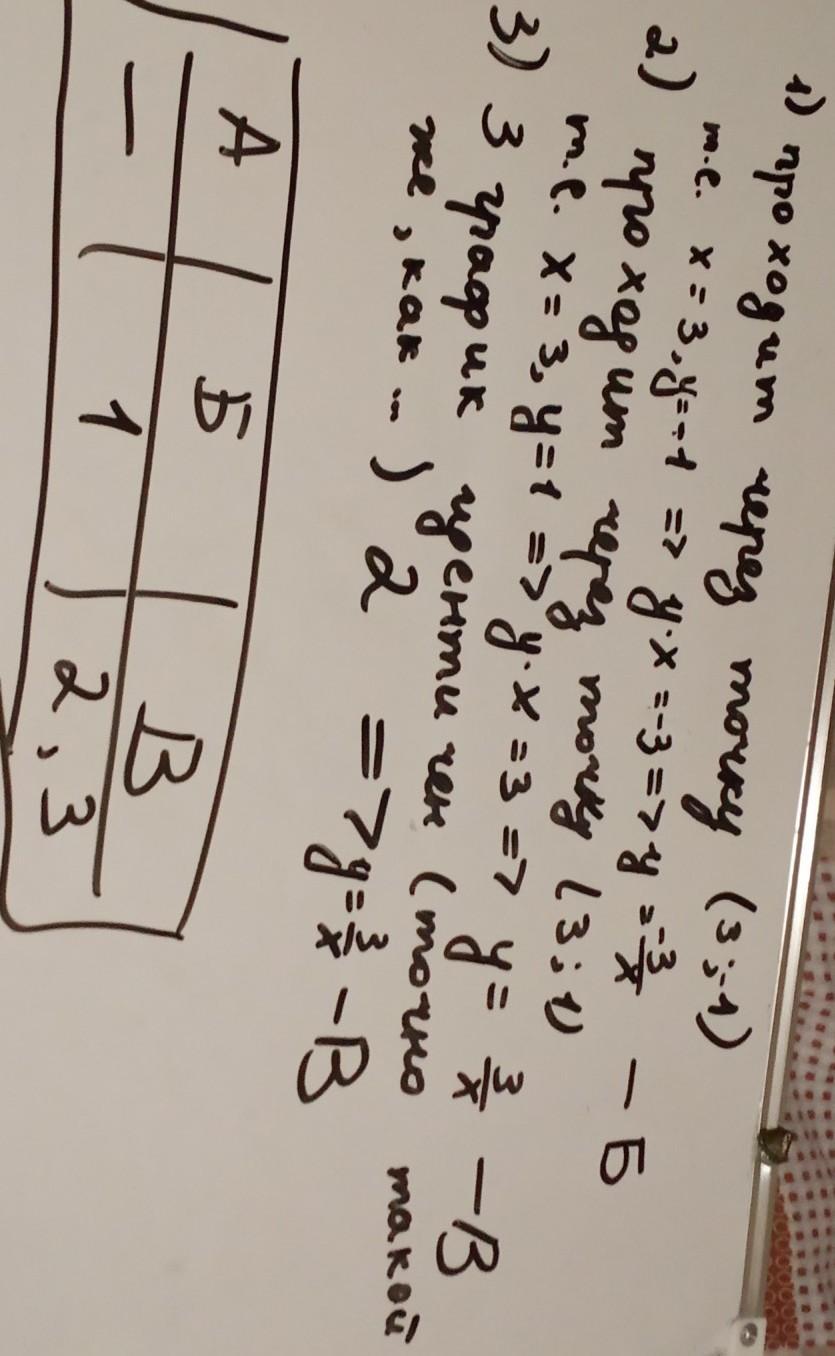 1) проходит через точку (3;-1)
т.е. x=3, y=-1 => y·x=-3 => y = -3/x - Б
2) проходит через точку (3;1)
т.е. x=3, y=1 => y·x=3 => y = 3/x - В
3) 3 график идентичен (точно такой
же, как ...) 2 => y = 3/x - В
А | Б | В
— | 1 | 2,3